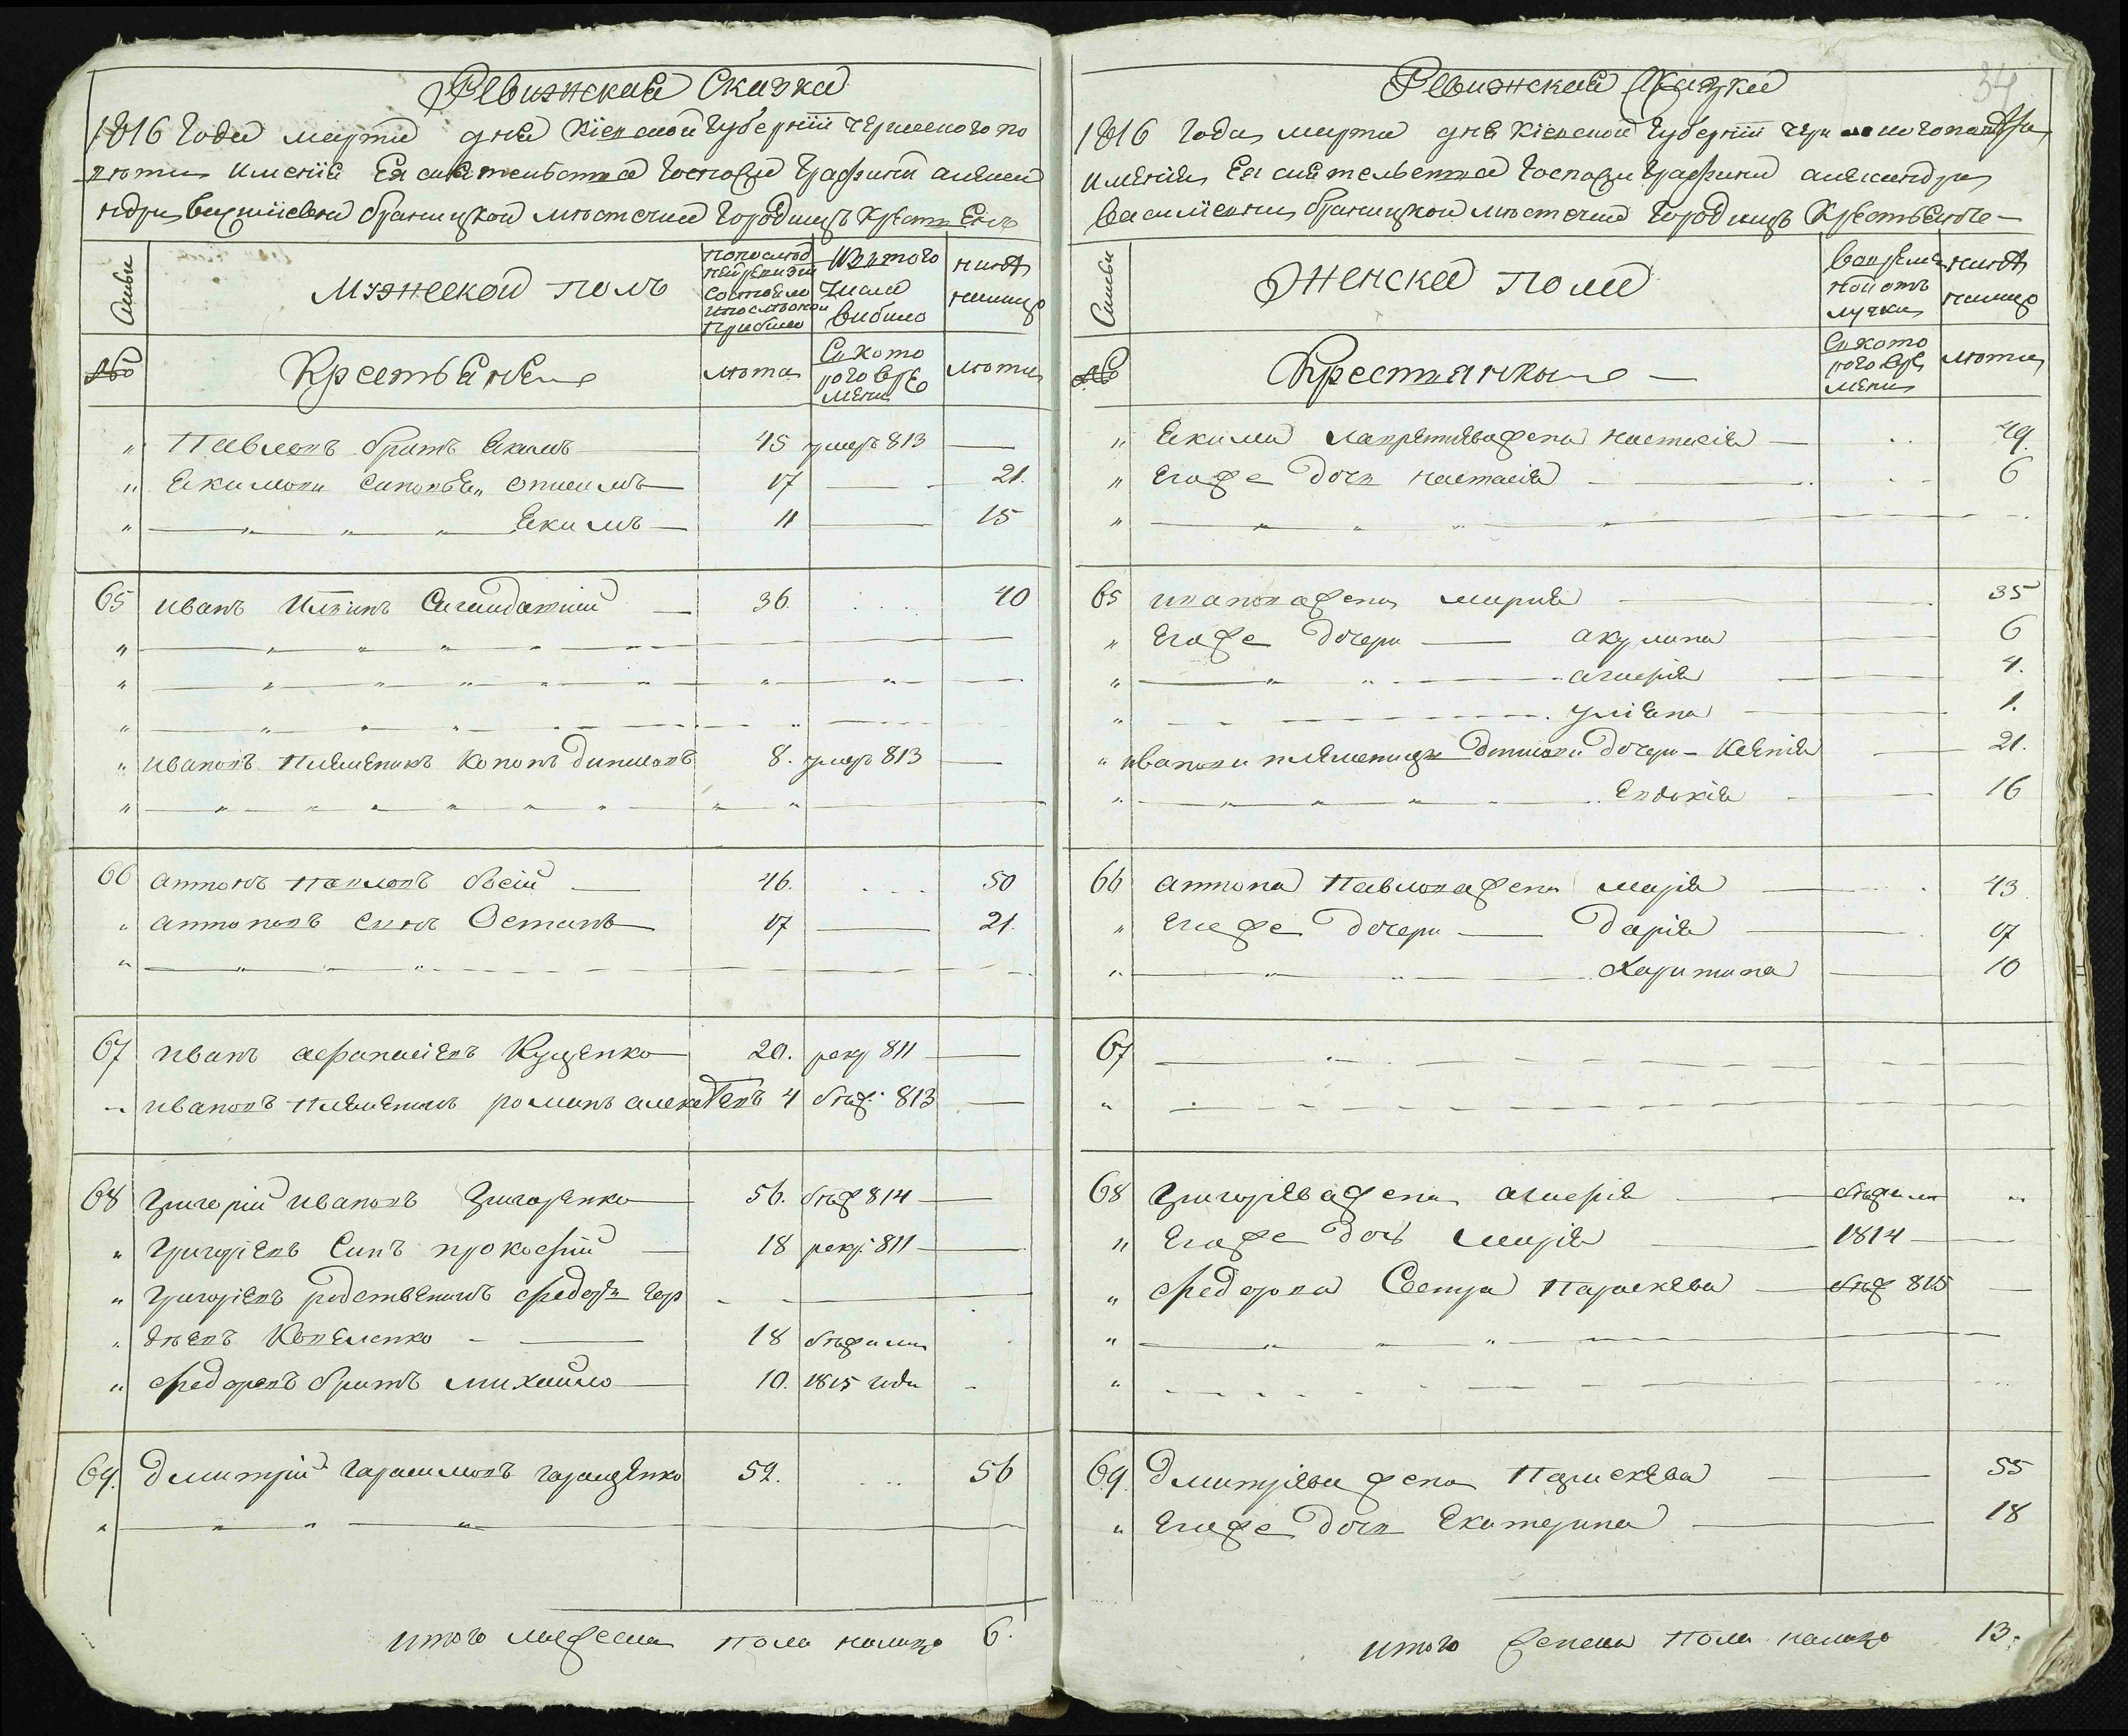 Ревизская Сказка
1816 Года марта дня Кіевской Губерніи Черкаского по
вѣта имѣнія Ея сиятельства Госпожи Графини алекса
ндры василіевни браницкой мѣстечка Городищъ Крестьянъ
Семьи
Мужеской полъ
по последней ревизіи состояло и после оной прибыло
Изъ того числа выбыло
нинѣ налицо
№
Крестьяне
лѣта
Съ которого времени
лѣта
" Павловъ братъ Якимъ 45 умеръ 813 —
" Якимови синовья Онисимъ 17 — 21.
" — " — " — " Якимъ — 11 — 15
65 иванъ Ильинъ 36. 40
" иванов племѣникъ Кононъ Даниловъ 8. умеръ 813 —
66 антонъ Павловъ босій 46. 50
" антоновъ синъ Остапъ 17 — 21.
67 иванъ афанасіевъ Куценко 20. рекр 811 —
" ивановъ племѣникъ романъ алексѣевъ 4 бѣж: 813 —
68 Григорій ивановъ Григоренко 56. бѣж 814 —
" Григоріевъ Синъ прокофій 18 рекр: 811 —
" Григоріевъ родственикъ федоръ гор
" дѣевъ Коваленко 18 бѣжали
" федоровъ братъ михайло 10. 1815 года
69. дмитрій Гарасимовъ 52. 56
итого мужеска пола налицо 6.
34
Ревизская Сказка
1816 Года марта дня Кіевской Губерніи повѣта
имѣнія Ея сиятельства Госпожи Графини александры
василіевни браницкой мѣстечка Городищъ Крестьяне
Семьи
Женска пола
Во временной отлучки
нинѣ налицо
№
Крестянки
Съ которого времени
лѣта
" Якима жена настасія — 49.
" Его же дочь настасія — 6
65 иванова жена марія — 35
" Его же дочери — акулина 6
" — " — агафія 4.
" — уліяна — 1.
" иванови племѣници Данилови дочери — Ксенія 21.
" — " — Евдокія 16
66 антона Павлова жена марія 43
" Его же дочери — Дарія 17
" — " — Харитина 10
67
68 Григоріева жена агафія — бѣжали "
" Его же дочь марія — 1814 —
" федорова Сестра Параскева — бѣж 815 —
69. дмитріева жена Параскева — 55
" Его же дочь Екатерина — 18
итого женска пола налицо 13.